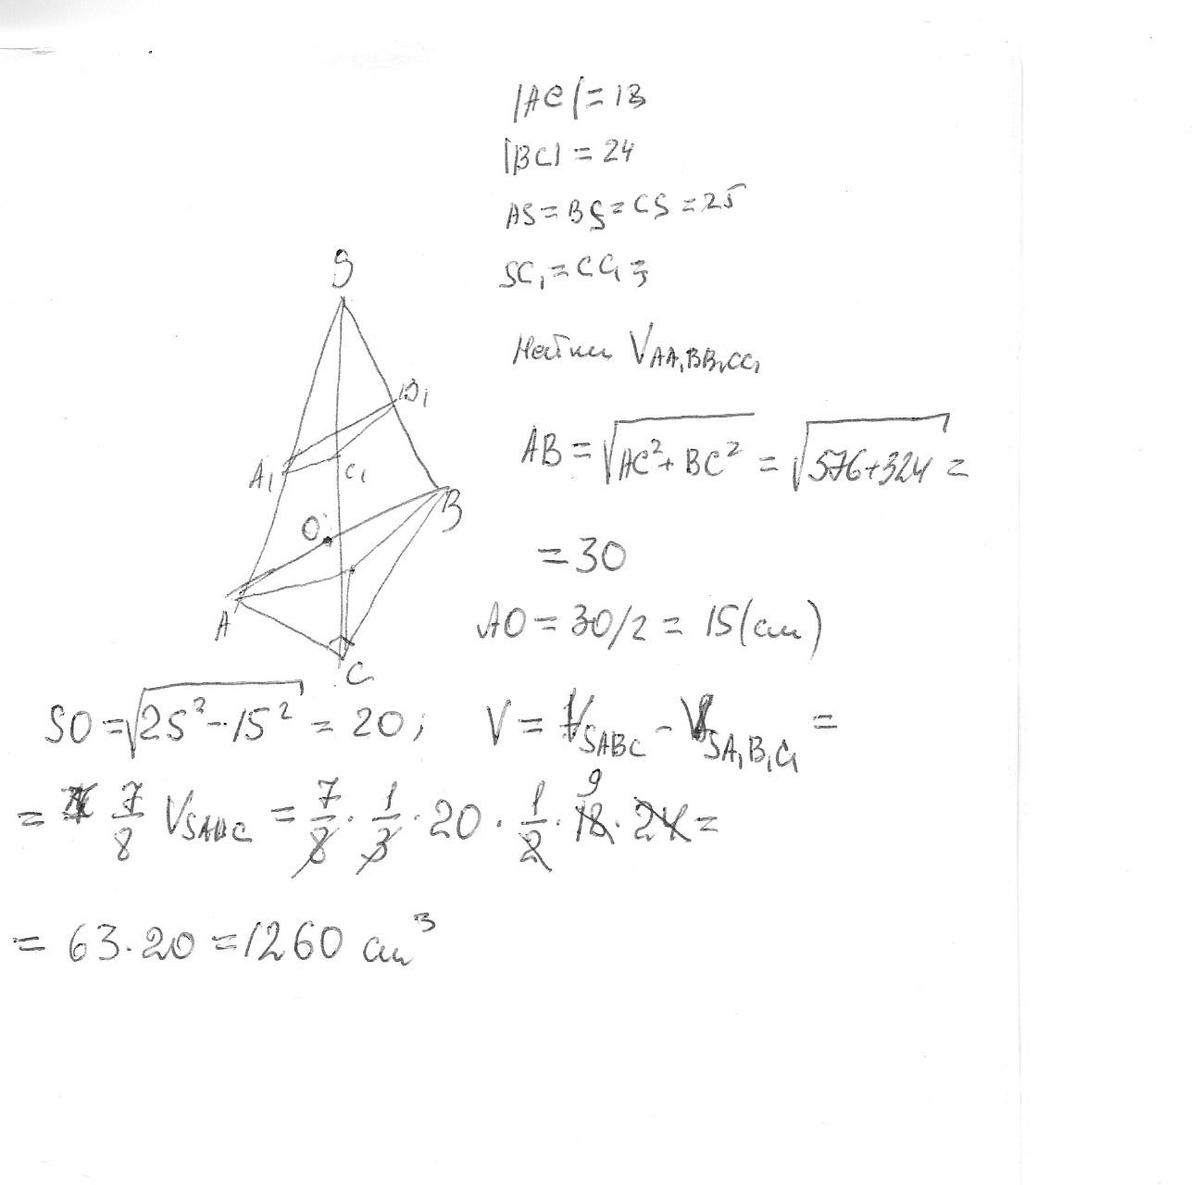 |AC| = 18
|BC| = 24
AS = BS = CS = 25
SC₁ = CC₁ =
Найти V AA₁BB₁CC₁
S
B₁
A₁
C₁
O
B
A
C
AB = √(AC² + BC²) = √(576+324) =
= 30
AO = 30/2 = 15 (см)
SO = √(25² - 15²) = 20; V = V SABC - V SA₁B₁C₁ =
= 7/8 V SABC = 7/8 · 1/3 · 20 · 1/2 · 18 · 24 =
9
= 63 · 20 = 1260 см³